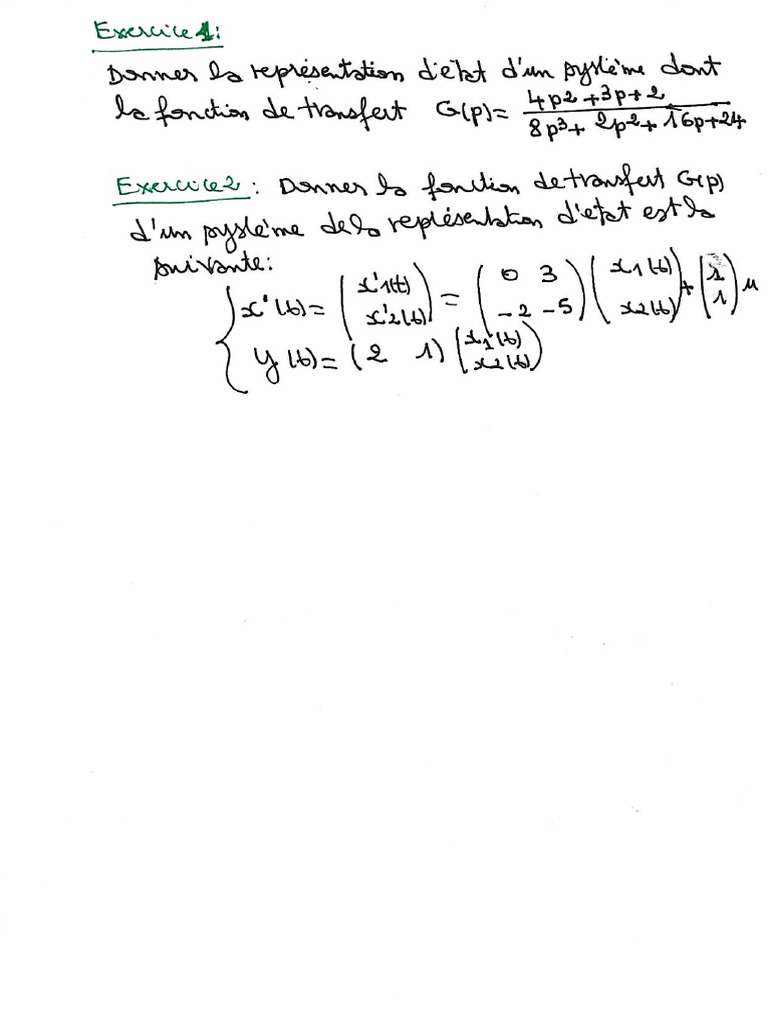 Exercice 1:
Donner la représentation d'état d'un système dont
la fonction de transfert G(p) = (4p2 + 3p + 2) / (8p3 + 2p2 + 16p + 24)
Exercice 2 : Donner la fonction de transfert G(p)
d'un système de la représentation d'état est la
suivante:
{ x'(t) = ( x'1(t) ; x'2(t) ) = ( 0 3 ; -2 -5 ) ( x1(t) ; x2(t) ) + ( 1 ; 1 ) u
y(t) = ( 2 1 ) ( x1(t) ; x2(t) )